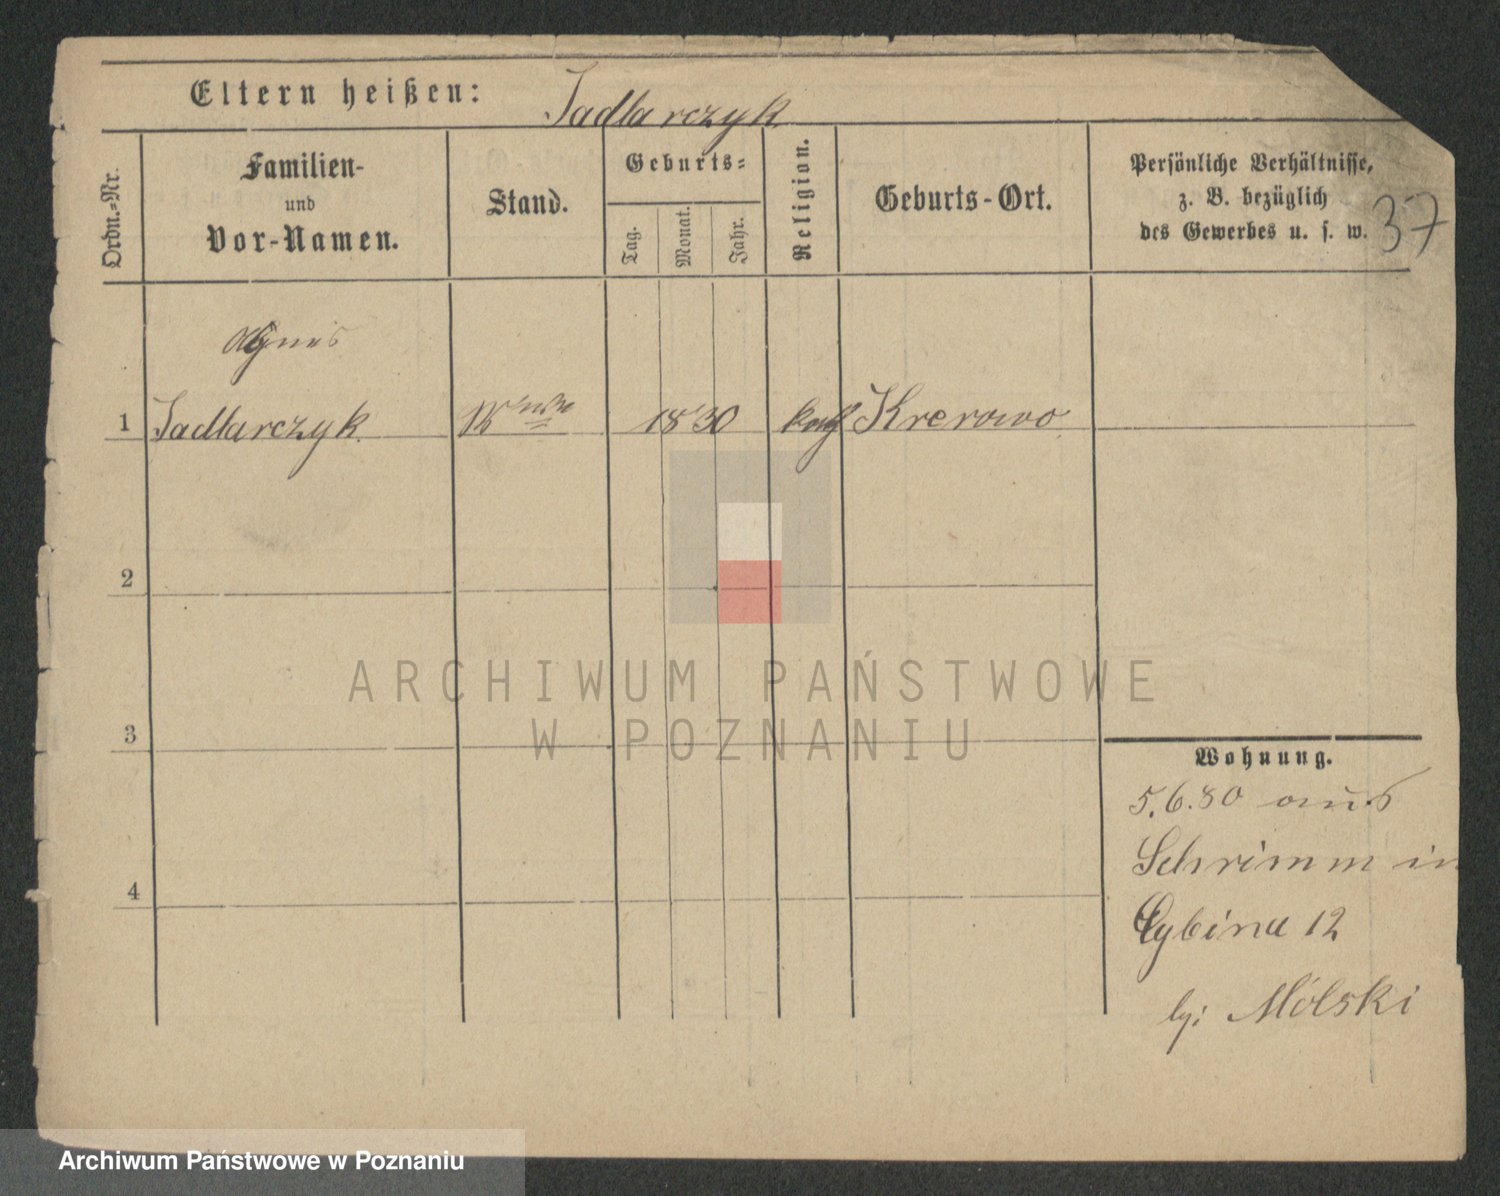 Eltern heißen: Jadlarczyk
Ordn.=Nr.
Familien-
und
Vor-Namen.
Stand.
Geburts=
Tag.
Monat.
Jahr.
Religion.
Geburts-Ort.
Persönliche Verhältnisse,
z. B. bezüglich
des Gewerbes u. s. w.
37
Agnes
1 Jadlarczyk 1830 kath Krerowo
2
3
4
Wohnung.
5.6.80 aus
Schrimm in
Cybina 12
by: Mólski
ARCHIWUM PAŃSTWOWE
W POZNANIU
Archiwum Państwowe w Poznaniu